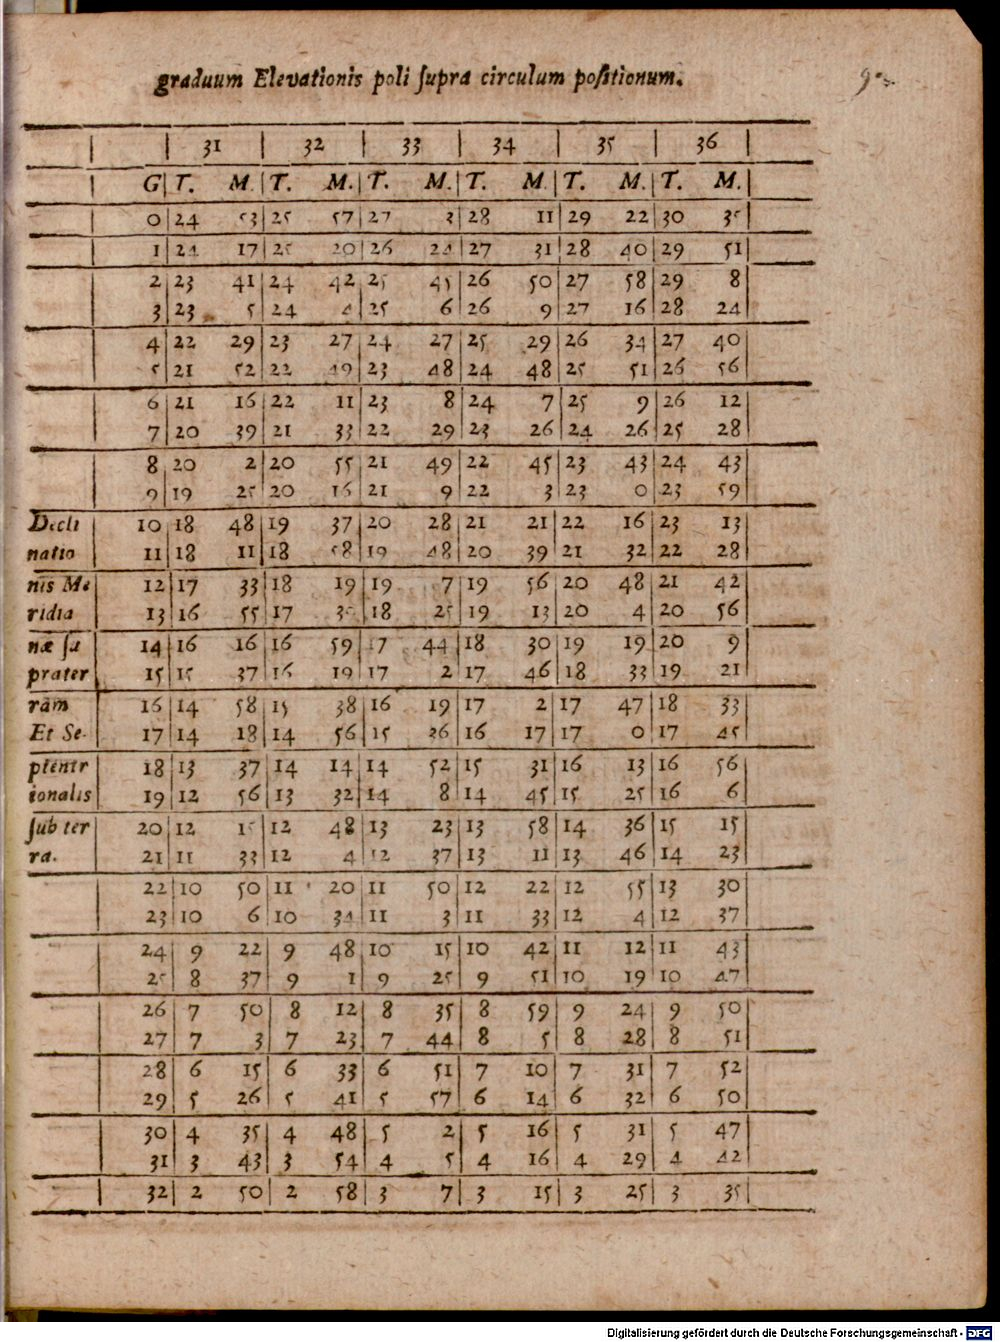 graduum Elevationis poli ſupra circulum poſitionum.
31 32 33 34 35 36
G T. M. T. M. T. M. T. M T. M. T. M.
0 24 53 25 57 27 3 28 11 29 22 30 35
1 24 17 25 20 26 24 27 31 28 40 29 51
2 23 41 24 42 25 45 26 50 27 58 29 8
3 23 5 24 4 25 6 26 9 27 16 28 24
4 22 29 23 27 24 27 25 29 26 34 27 40
5 21 52 22 49 23 48 24 48 25 51 26 56
6 21 16 22 11 23 8 24 7 25 9 26 12
7 20 39 21 33 22 29 23 26 24 26 25 28
8 20 2 20 55 21 49 22 45 23 43 24 43
9 19 25 20 16 21 9 22 3 23 0 23 59
Decli 10 18 48 19 37 20 28 21 21 22 16 23 13
natio 11 18 11 18 58 19 48 20 39 21 32 22 28
nis Me 12 17 33 18 19 19 7 19 56 20 48 21 42
ridia 13 16 55 17 39 18 25 19 13 20 4 20 56
næ ſu 14 16 16 16 59 17 44 18 30 19 19 20 9
prater 15 15 37 16 19 17 2 17 46 18 33 19 21
ram 16 14 58 15 38 16 19 17 2 17 47 18 33
Et Se- 17 14 18 14 56 15 36 16 17 17 0 17 45
ptentr 18 13 37 14 14 14 52 15 31 16 13 16 56
ionalis 19 12 56 13 32 14 8 14 45 15 25 16 6
ſub ter 20 12 15 12 48 13 23 13 58 14 36 15 15
ra. 21 11 33 12 4 12 37 13 11 13 46 14 23
22 10 50 11 20 11 50 12 22 12 55 13 30
23 10 6 10 34 11 3 11 33 12 4 12 37
24 9 22 9 48 10 15 10 42 11 12 11 43
25 8 37 9 1 9 25 9 51 10 19 10 47
26 7 50 8 12 8 35 8 59 9 24 9 50
27 7 3 7 23 7 44 8 5 8 28 8 51
28 6 15 6 33 6 51 7 10 7 31 7 52
29 5 26 5 41 5 57 6 14 6 32 6 50
30 4 35 4 48 5 2 5 16 5 31 5 47
31 3 43 3 54 4 5 4 16 4 29 4 42
32 2 50 2 58 3 7 3 15 3 25 3 35
Digitalisierung gefördert durch die Deutsche Forschungsgemeinschaft - DFG